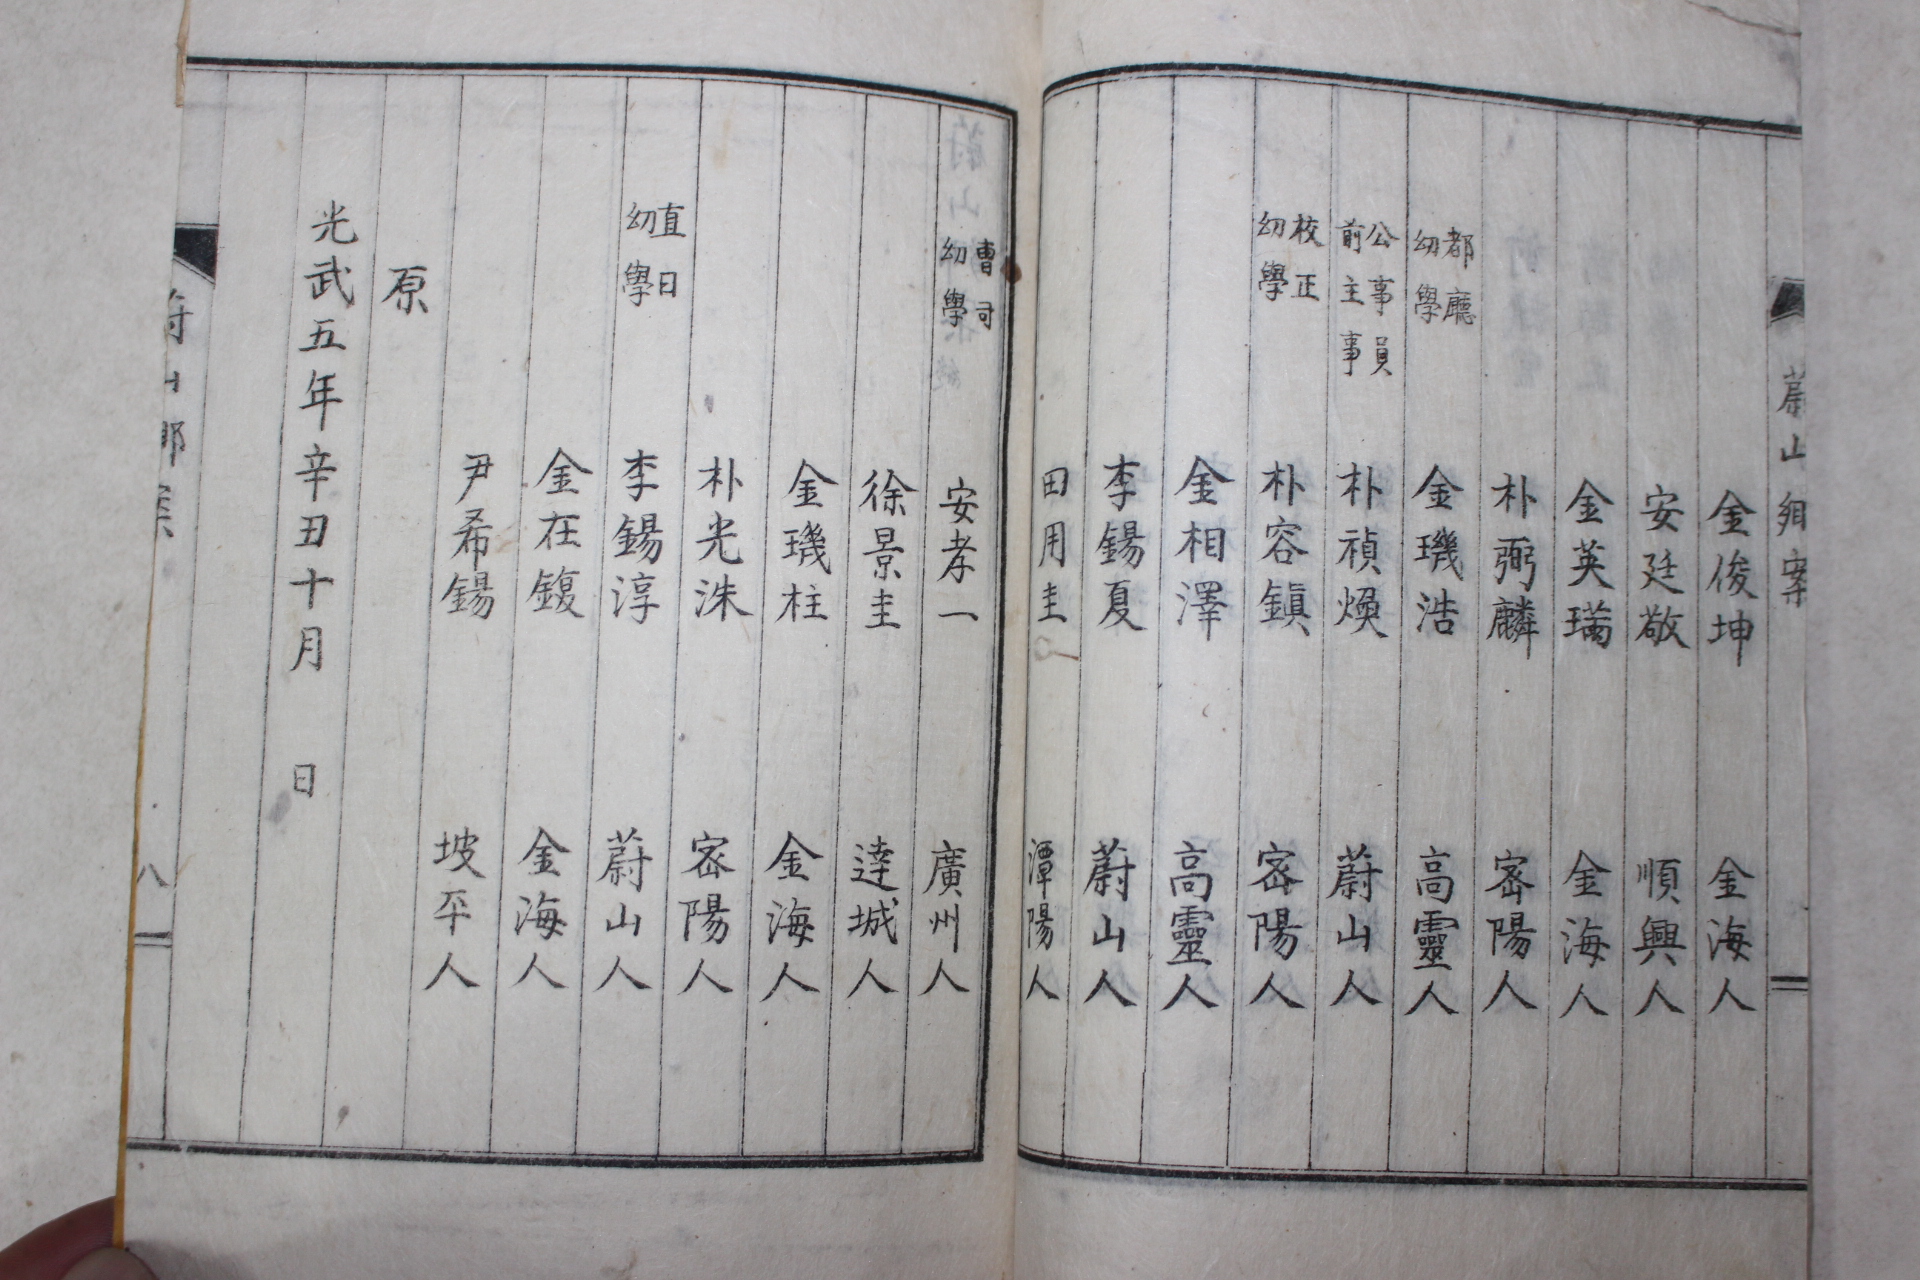 蔚山鄕案
金俊坤 金海人
安廷敬 順興人
金英璊 金海人
朴弼麟 密陽人
都廳 幼學 金璣浩 高靈人
公事員 前主事 朴禎煥 蔚山人
校正 幼學 朴容鎭 密陽人
金相澤 高靈人
李錫夏 蔚山人
田用圭 潭陽人
曹司 幼學 安孝一 廣州人
徐景圭 達城人
金璣柱 金海人
朴光洙 密陽人
直日 幼學 李錫淳 蔚山人
金在鍑 金海人
尹希錫 坡平人
原
光武五年辛丑十月 日
蔚山鄕案 八